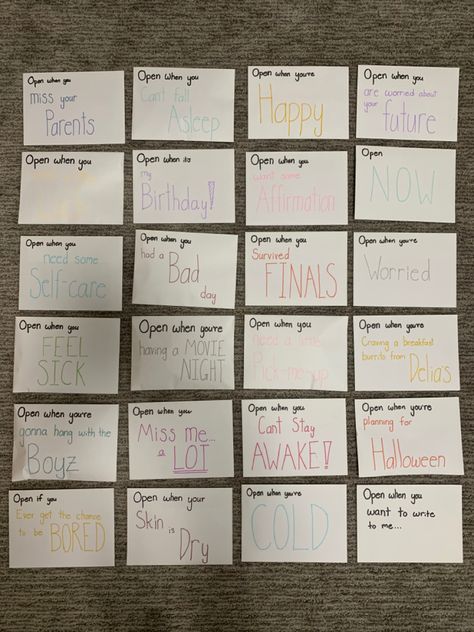 Open when you
miss your
Parents
Open when you
Cant fall
Asleep
Open when you're
Happy
Open when you
are worried about
your future
Open when you
Open when its
my
Birthday!
Open when you
want some
Affirmation
Open
NOW
Open when you
need some
Self-care
Open when you
had a
Bad
day
Open when you
Survived
FINALS
Open when you're
Worried
Open when you
FEEL
SICK
Open when you're
having a MOVIE
NIGHT
Open when you
need a little
Pick-me-up
Open when you're
Craving a breakfast
burrito from Delia's
Open when you're
gonna hang with the
Boyz
Open when you
Miss me...
a LOT
Open when you
Cant Stay
AWAKE!
Open when you're
planning for
Halloween
Open if you
Ever get the chance
to be BORED
Open when your
Skin is
Dry
Open when you're
COLD
Open when you
want to write
to me...